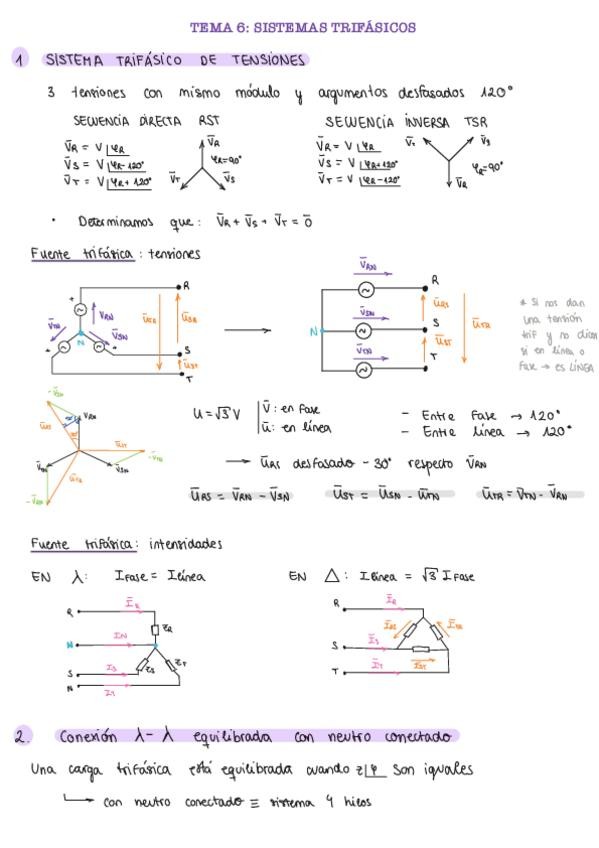 TEMA 6: SISTEMAS TRIFÁSICOS
1 SISTEMA TRIFÁSICO DE TENSIONES
3 tensiones con mismo módulo y argumentos desfasados 120°
SECUENCIA DIRECTA RST
V̄R = V |φR
V̄S = V |φR-120°
V̄T = V |φR+120°
V̄R
φR=90°
V̄T
V̄S
SECUENCIA INVERSA TSR
V̄R = V |φR
V̄S = V |φR+120°
V̄T = V |φR-120°
V̄T
V̄S
φR=90°
V̄R
• Determinamos que: V̄R + V̄S + V̄T = 0̄
Fuente trifásica: tensiones
R
+
V̄RN
V̄TN
V̄SN
N
+
+
ŪTR
ŪSR
S
ŪST
T
V̄RN
R
ŪRS
V̄SN
N
S
ŪTR
ŪST
V̄TN
T
* Si nos dan
una tensión
trif y no dicen
si en línea o
Fase → es LÍNEA
-V̄SN
V̄RN
ŪRS
30°
ŪST
-V̄TN
V̄TN
V̄SN
ŪTR
-V̄RN
U = √3 V
V̄: en fase
Ū: en línea
- Entre Fase → 120°
- Entre línea → 120°
→ ŪRS desfasado -30° respecto V̄RN
ŪRS = V̄RN - V̄SN
ŪST = ŪSN - ŪTN
ŪTR = V̄TN - V̄RN
Fuente trifásica: intensidades
EN λ: IFASE = Ilínea
EN Δ: Ilínea = √3 IFASE
R
ĪR
ZR
N
IN
S
ĪS
ZS
ZT
N
ĪT
R
ĪR
ĪRS
ĪTR
S
ĪS
ĪST
T
ĪT
2. Conexión λ-λ equilibrada con neutro conectado
Una carga trifásica está equilibrada cuando z|φ son iguales
↳ con neutro conectado ≡ sistema 4 hilos